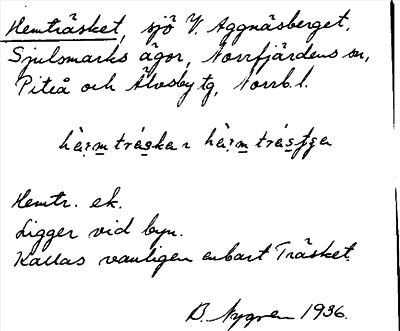 Hemträsket, sjö V. Aggnäsberget,
Sjulsmarks ägor, Norrfjärdens sn,
Piteå och Älvsby tg, Norrb. l.
Hemtr. ek.
Ligger vid byn.
Kallas vanligen enbart Träsket.
B. Nygren 1936.